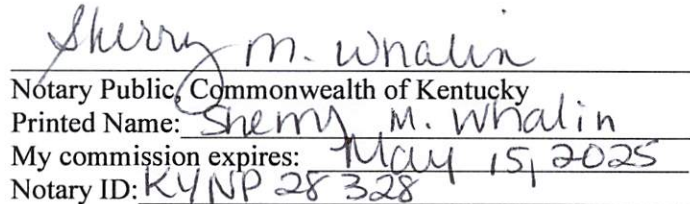 Sherry M. Whalin
Notary Public, Commonwealth of Kentucky
Printed Name: Sherry M. Whalin
My commission expires: May 15, 2025
Notary ID: KYNP 28328